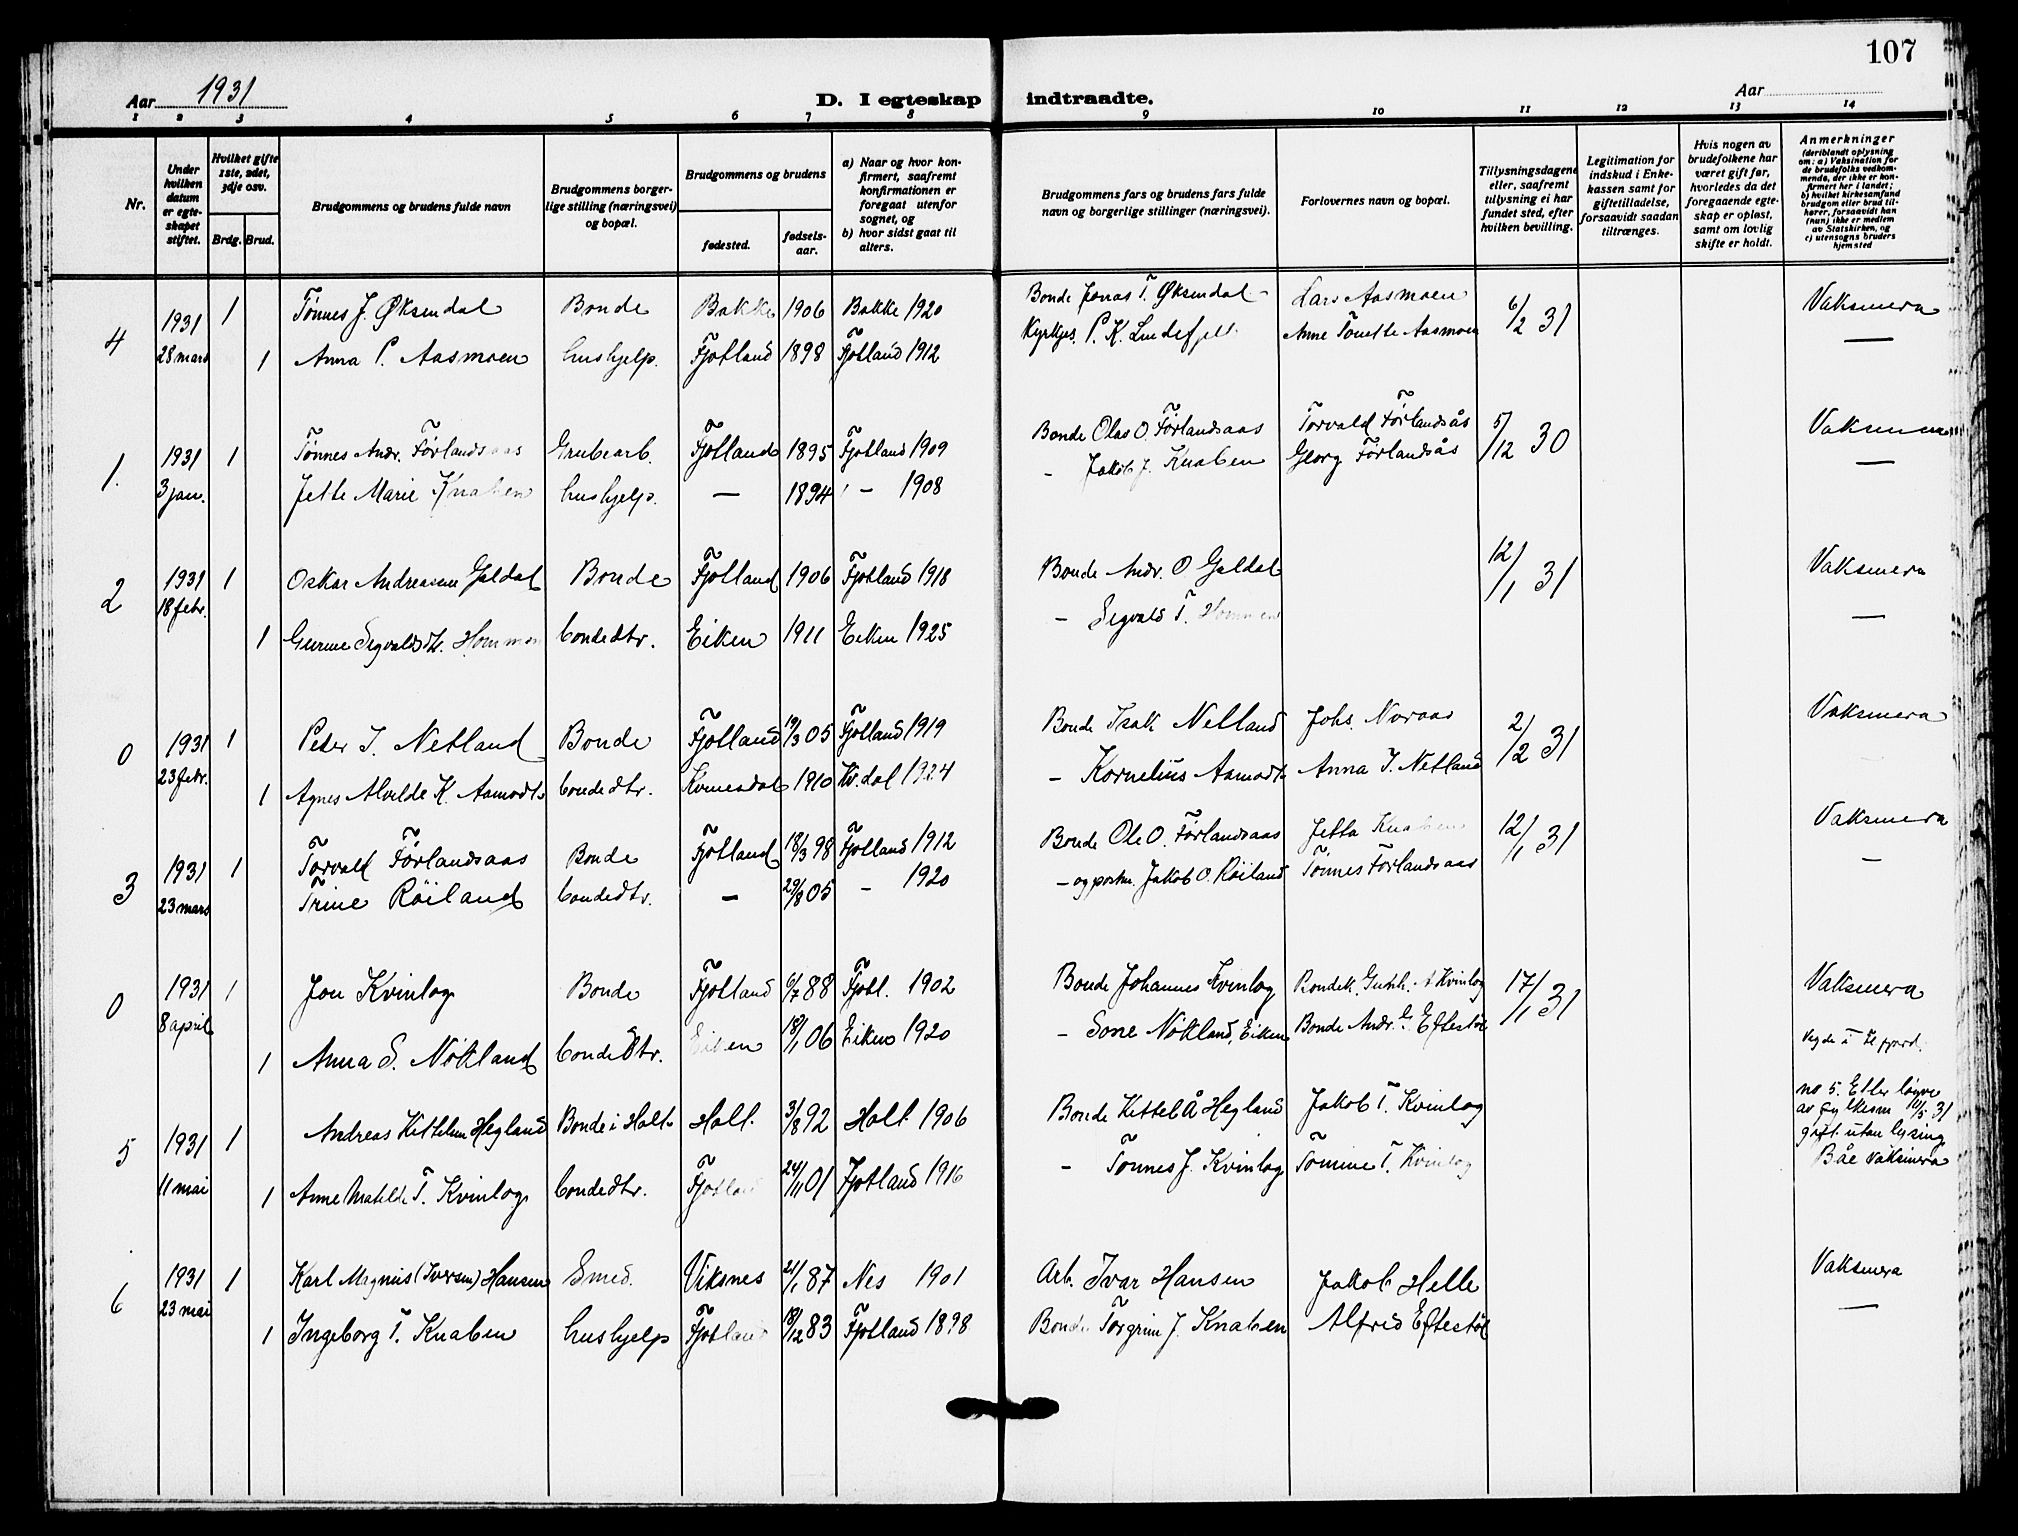 107
Aar 1931
D. I egteskap indtraadte.
Aar
1 2 3 4 5 6 7 8 9 10 11 12 13 14
Nr.
Under hvilken datum er egteskapet stiftet.
Hvilket gifte 1ste, 2det, 3dje osv.
Brdg. Brud.
Brudgommens og brudens fulde navn
Brudgommens borgerlige stilling (næringsvei) og bopæl.
Brudgommens og brudens
fødested. fødselsaar.
a) Naar og hvor konfirmert, saafremt konfirmationen er foregaat utenfor sognet, og
b) hvor sidst gaat til alters.
Brudgommens fars og brudens fars fulde navn og borgerlige stillinger (næringsvei).
Forlovernes navn og bopæl.
Tillysningsdagene eller, saafremt tillysning ei har fundet sted, efter hvilken bevilling.
Legitimation for indskud i Enkekassen samt for giftetilladelse, forsaavidt saadan tiltrænges.
Hvis nogen av brudefolkene har været gift før, hvorledes da det foregaaende egteskap er opløst, samt om lovlig skifte er holdt.
Anmerkninger (deriblandt oplysning om: a) Vaksination for de brudefolks vedkommende, der ikke er konfirmert her i landet; b) hvilket kirkesamfund brudgom eller brud tilhører, forsaavidt han (hun) ikke er medlem av Statskirken, og c) utensogns bruders hjemsted
4 1931 28 mars 1 Tønnes J. Øksendal Bonde Bakke 1906 Bakke 1920 Bonde Jonas T. Øksendal Lars Aasmoen 6/2 31 Vaksinera
1 Anna P. Aasmoen hushjelp. Fjotland 1898 Fjotland 1912 Kyrkjes. P. K. Lindefjell Anne Tonette Aasmoen —
1. 1931 3 jan. 1 Tønnes Andr. Førlandsaas Grubearb. Fjotland 1895 Fjotland 1909 Bonde Olas O. Førlandsaas Torvald Førlandsås 5/12 30 Vaksinera
Jette Marie Knaben hushjelp. — 1894 — 1908 - Jakob J. Knaben Georg Førlandsås —
2 1931 18 febr. 1 Oskar Andreassen Galdal Bonde Fjotland 1906 Fjotland 1918 Bonde Andr. O. Galdal 12/1 31 Vaksinera
1 Gurine Segvaldsdtr. Hommen bondedtr. Eiken 1911 Eiken 1925 - Segvald T. Hommen —
0 1931 23 febr. 1 Peder I. Netland Bonde Fjotland 19/3 05 Fjotland 1919 Bonde Isak Netland Johs. Noraas 2/2 31 Vaksinera
1 Agnes Alvilde K. Aamodt bondedtr. Kvinesdal 1910 Kv.dal 1924 - Kornelius Aamodt Anna I. Netland
3 1931 23 mars 1 Torvald Førlandsaas Bonde Fjotland 18/3 98 Fjotland 1912 Bonde Ole O. Førlandsaas Jetta Knaben 12/1 31 Vaksinera
Trine Röiland bondedtr. — 29/8 05 - 1920 - og postm. Jakob O. Röiland Tönnes Førlandsaas —
0 1931 8 april 1 Jon Kvinlog Bonde Fjotland 6/7 88 Fjotl. 1902 Bonde Johannes Kvinlog Bondek. Kvinlog 17/1 31 Vaksinera
1 Anna S. Nötland bondedtr. Eiken 18/1 06 Eiken 1920 - Sone Nötland, Eiken Bonde Andr. Eftestöl
5 1931 11 mai 1 Andreas Kittelsen Hegland Bonde i Holt Holt. 3/8 92 Holt 1906 Bonde Kittel Å Hegland Jakob T. Kvinlog no 5. Etter løyve av fylkesm 11/5 31 gift utan lysing
1 Anne Matilde T. Kvinlog bondedtr. Fjotland 24/11 01 Fjotland 1916 - Tønnes J. Kvinlog Tomine T. Kvinlog Båe vaksinera
6 1931 23 mai 1 Karl Magnus (Iversen) Hansen Smed. Viksnes 21/1 87 Nes 1901 Arb. Ivar Hansen Jakob Helle Vaksinera
1 Ingeborg T. Knaben hushjelp Fjotland 18/12 83 Fjotland 1898 Bonde Torgrim J. Knaben Alfred Eftestöl —